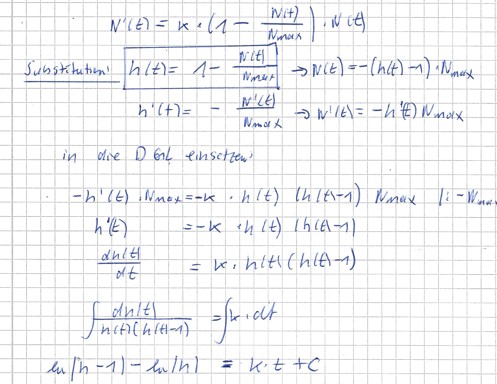 N'(t) = k · (1 - N(t)/Nmax) · N(t)
Substitution: h(t) = 1 - N(t)/Nmax → N(t) = -(h(t)-1) · Nmax
h'(t) = - N'(t)/Nmax → N'(t) = -h'(t) Nmax
in die DGL einsetzen:
-h'(t) · Nmax = -k · h(t) (h(t)-1) Nmax |: -Nmax
h'(t) = -k · h(t) (h(t)-1)
dh(t)/dt = k · h(t) (h(t)-1)
∫ dh(t)/h(t)(h(t)-1) = ∫ k · dt
ln|h-1| - ln|h| = k · t + C